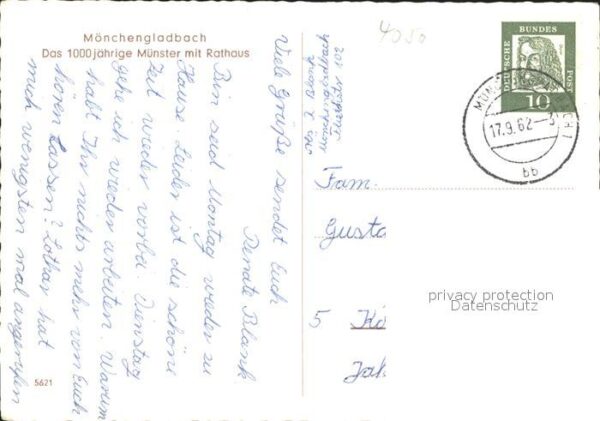 Mönchengladbach
Das 1000jährige Münster mit Rathaus
Viele Grüße sendet Euch
Renate Blank.
Bin seid Montag wieder zu
Hause. Leider ist die schöne
Zeit wieder vorbei. Dinstag
gehe ich wieder arbeiten. Warum
habt Ihr nichts mehr von Euch
hören lassen? Lothar hat
mich wenigsten mal angerufen
5621
Abs. R. Blank
Mönchengladbach
DEUTSCHE BUNDESPOST
10
17.9.62
bb
Fam.
Gusta
5 Kö
Jak
privacy protection
Datenschutz